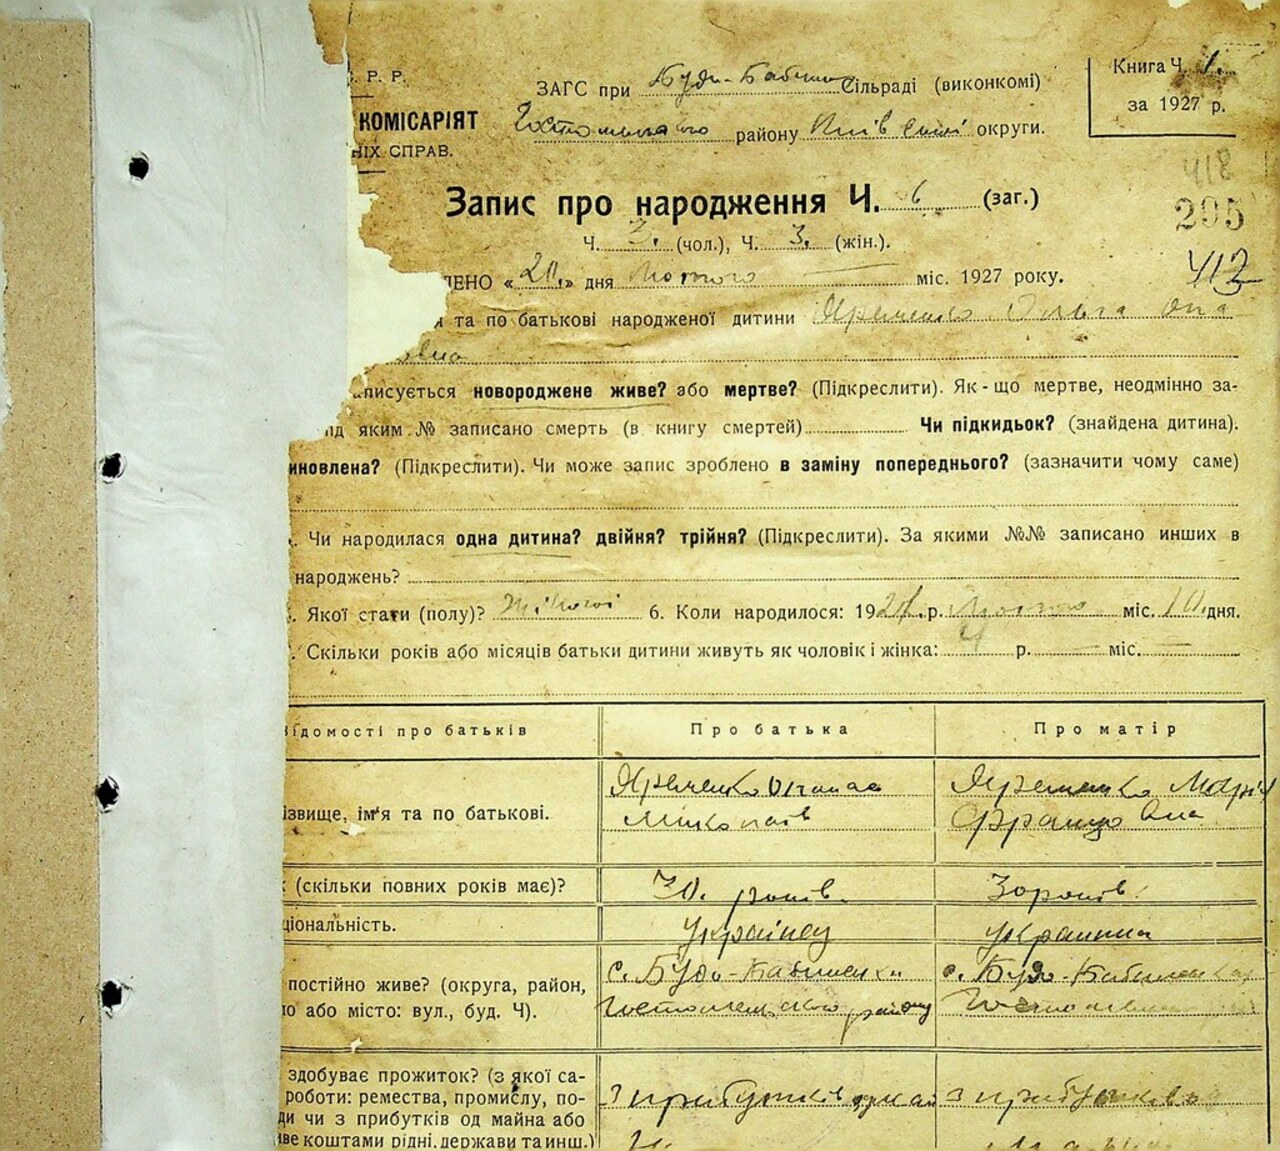 . Р. Р.
КОМІСАРІЯТ
НІХ СПРАВ.
ЗАГС при Буда-Бабинец Сільраді (виконкомі)
Гостомльського району Київської округи.
Книга Ч. 1.
за 1927 р.
418
205
413
Запис про народження Ч. 6 (заг.)
Ч. 3. (чол.), Ч. 3. (жін.).
ЛЕНО « 20. » дня Лютого міс. 1927 року.
я та по батькові народженої дитини Яременко Ольга Опа
овна
аписується новороджене живе? або мертве? (Підкреслити). Як-що мертве, неодмінно за-
ід яким № записано смерть (в книгу смертей) Чи підкидьок? (знайдена дитина).
иновлена? (Підкреслити). Чи може запис зроблено в заміну попереднього? (зазначити чому саме)
. Чи народилася одна дитина? двійня? трійня? (Підкреслити). За якими №№ записано инших в
народжень?
. Якої стати (полу)? Жіночої 6. Коли народилося: 1927 р. Лютого міс. 10. дня.
. Скільки років або місяців батьки дитини живуть як чоловік і жінка: 4 р. — міс. —
ідомості про батьків Про батька Про матір
ізвище, ім'я та по батькові. Яременко Опанас Яременко Марія
Міколаїв Францовна
к (скільки повних років має)? 30. років. 30 років.
ціональність. Українец Украинка
постійно живе? (округа, район, с. Буда-Бабинецка с. Буда-Бабинецка
ло або місто: вул., буд. Ч). Гостомельського району
здобуває прожиток? (з якої са-
роботи: ремества, промислу, по- З прибутків З прибутків
ди чи з прибутків од майна або
иве коштами рідні, держави та инш.)